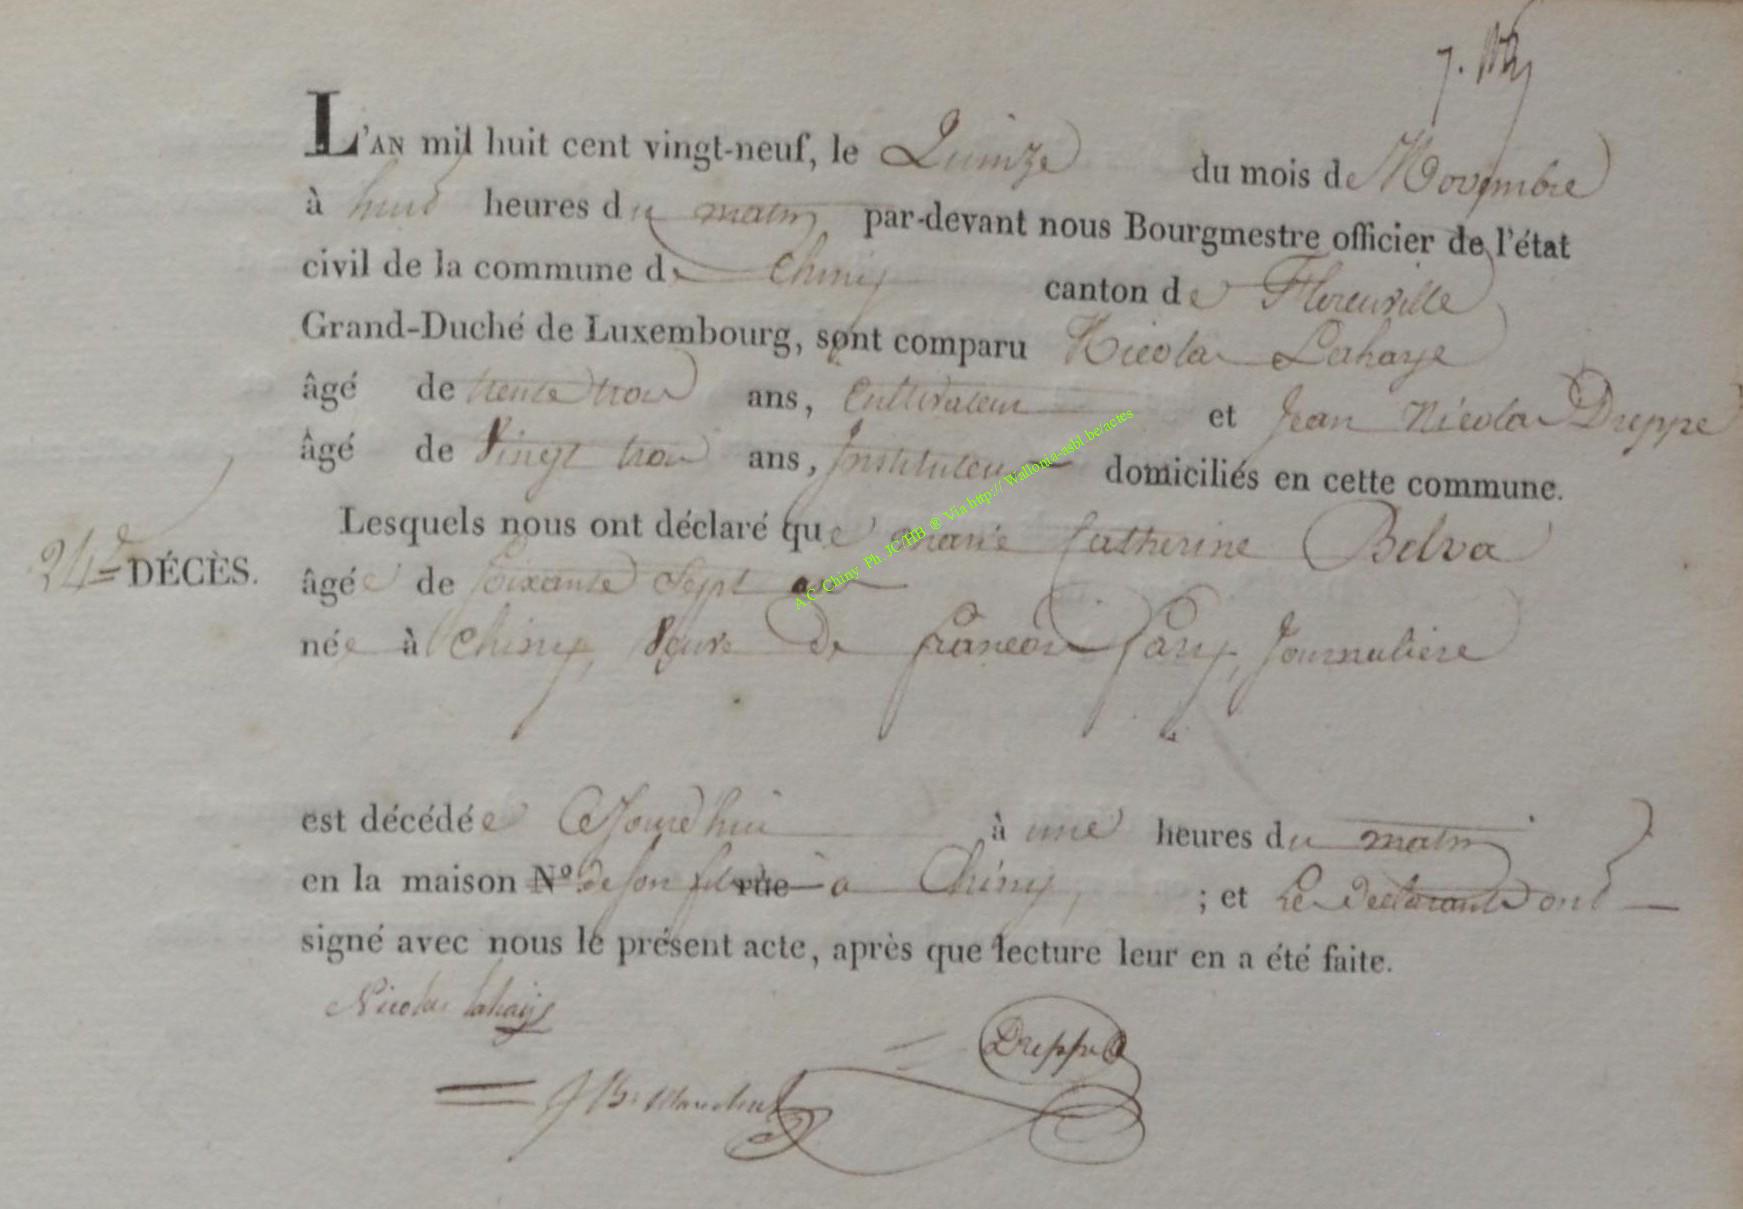 L'AN mil huit cent vingt-neuf, le Quinze du mois de Novembre
à huit heures du matin par-devant nous Bourgmestre officier de l'état
civil de la commune de Chiny canton de Florenville
Grand-Duché de Luxembourg, sont comparu Nicolas Lahaye
âgé de trente trois ans, Cultivateur et Jean Nicolas Dreppe
âgé de Vingt trois ans, Instituteur domiciliés en cette commune.
Lesquels nous ont déclaré que Marie Catherine Belva
24e DÉCÈS. âgée de Soixante Sept ans
née à Chiny, Veuve de françois Pary, Journaliere
est décédée Cejourd'hui à une heures du matin
en la maison N° de son fils rue a Chiny, ; et Les declarants ont
signé avec nous le présent acte, après que lecture leur en a été faite.
Nicolas lahaye
Dreppe
JB
A C Chiny Ph JC/HB ® Via http:// Wallonia-asbl.be/actes